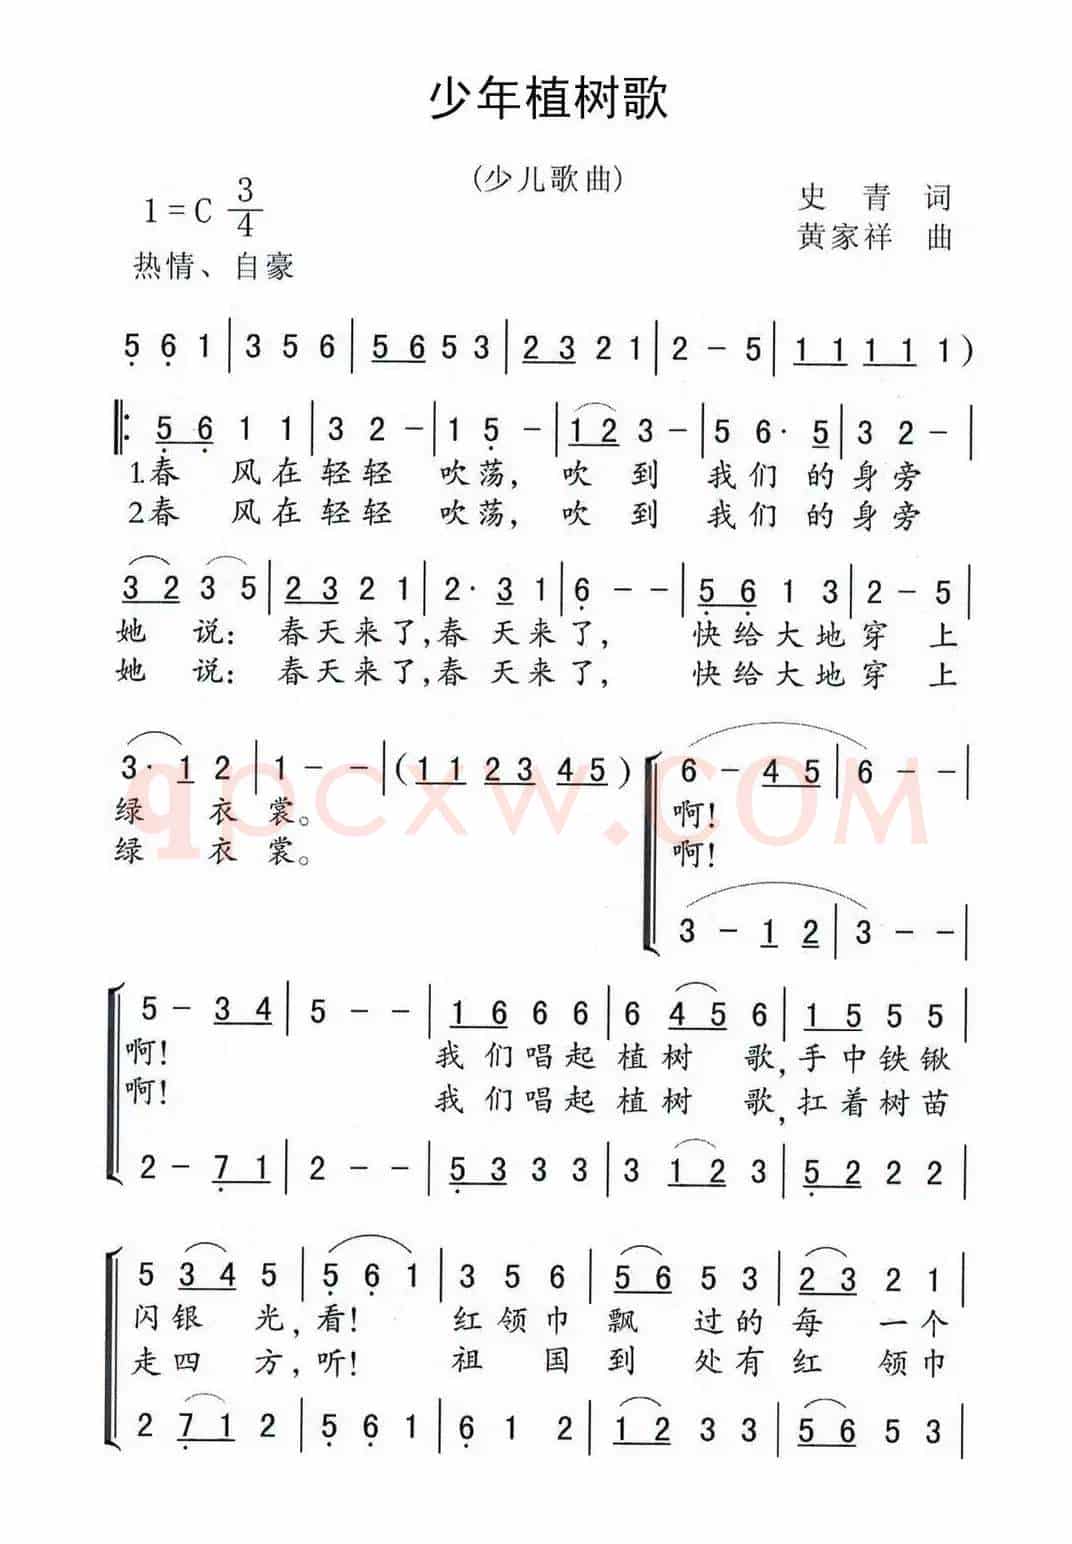 少年植树歌
(少儿歌曲)
1=C 3/4
史 青 词
黄家祥 曲
热情、自豪
5 6 1 | 3 5 6 | 5 6 5 3 | 2 3 2 1 | 2 - 5 | 1 1 1 1 1 )
‖: 5 6 1 1 | 3 2 - | 1 5 - | 1 2 3 - | 5 6· 5 | 3 2 - |
1春 风在轻轻 吹荡，吹 到 我们 的身旁
2春 风在轻轻 吹荡，吹 到 我们 的身旁
3 2 3 5 | 2 3 2 1 | 2· 3 1 | 6 - - | 5 6 1 3 | 2 - 5 |
她 说：春天来了,春 天来了， 快给大地穿 上
她 说：春天来了,春 天来了， 快给大地穿 上
3· 1 2 | 1 - - | ( 1 1 2 3 4 5 ) | 6 - 4 5 | 6 - - |
绿 衣裳。 啊！
绿 衣裳。 啊！
qpcxw.COM
3 - 1 2 | 3 - - |
5 - 3 4 | 5 - - | 1 6 6 6 | 6 4 5 6 | 1 5 5 5 |
啊！ 我们唱起植树 歌，手中铁锹
啊！ 我们唱起植树 歌，扛着树苗
2 - 7 1 | 2 - - | 5 3 3 3 | 3 1 2 3 | 5 2 2 2 |
5 3 4 5 | 5 6 1 | 3 5 6 | 5 6 5 3 | 2 3 2 1 |
闪银 光，看！ 红领巾飘 过的每 一个
走四 方，听！ 祖 国到 处有红 领巾
2 7 1 2 | 5 6 1 | 6 1 2 | 1 2 3 3 | 5 6 5 3 |